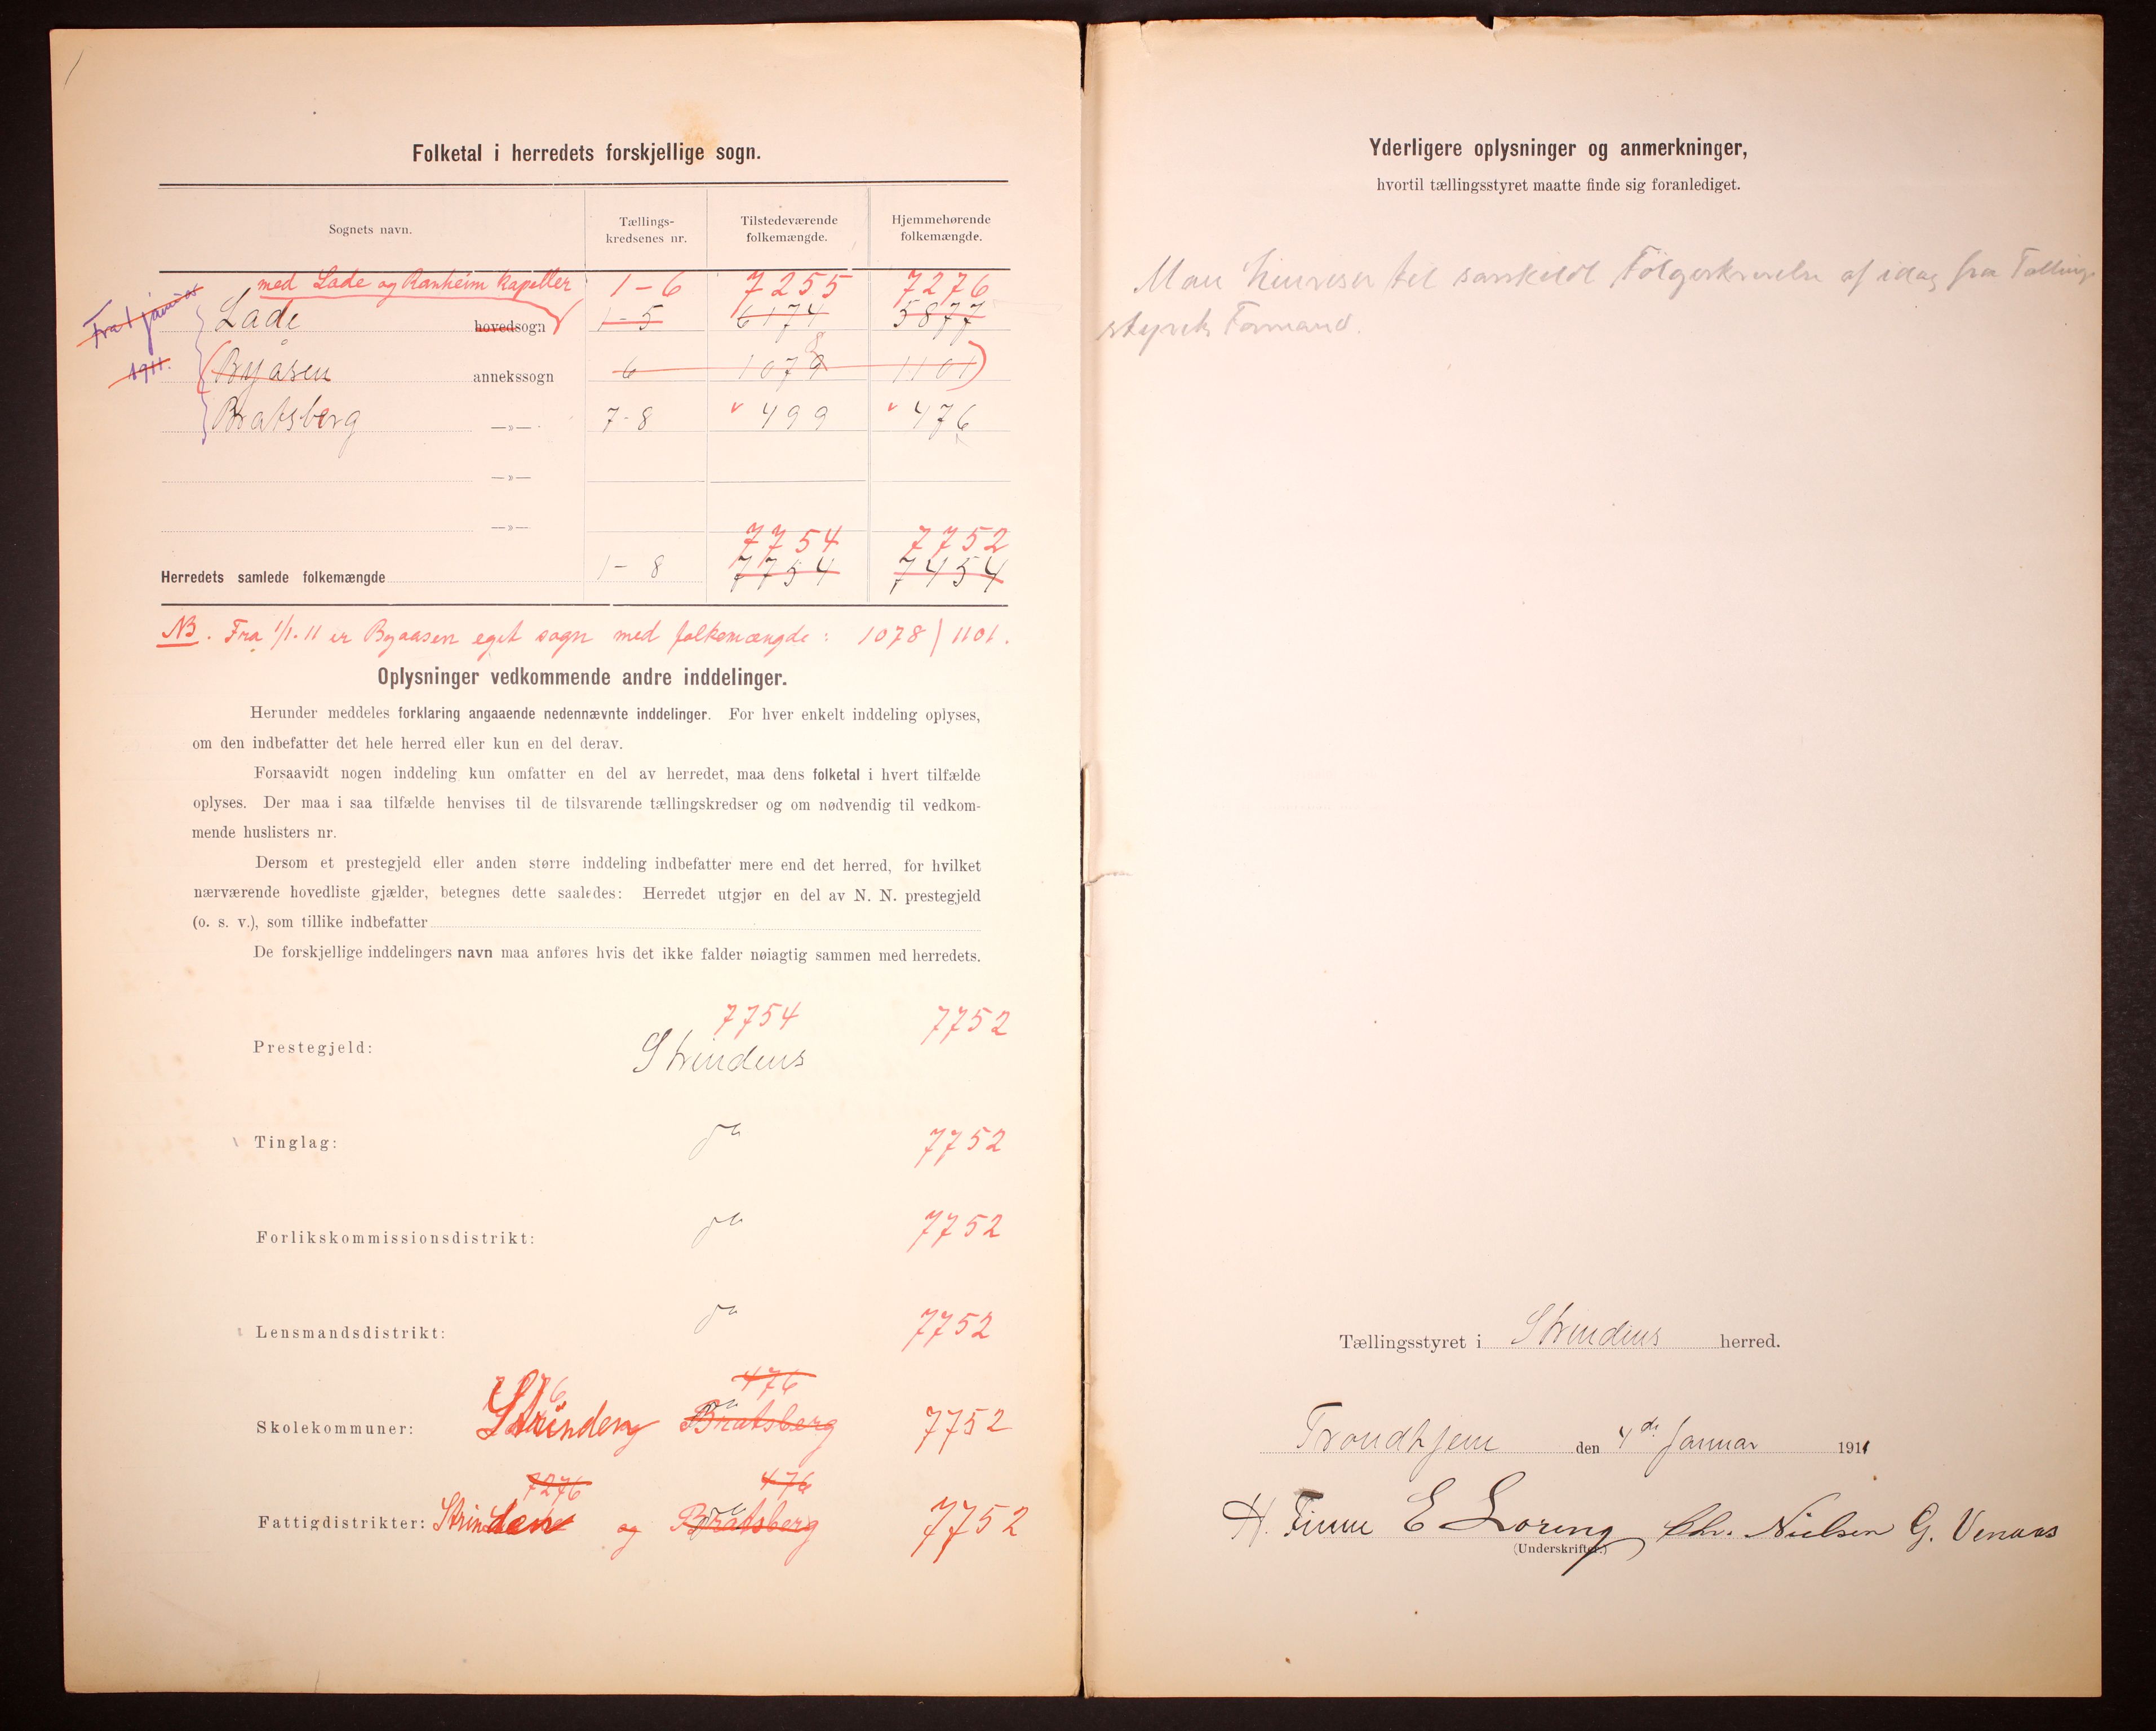 Folketal i herredets forskjellige sogn.
Sognets navn.
Tællings-
kredsenes nr.
Tilstedeværende
folkemængde.
Hjemmehørende
folkemængde.
med Lade og Ranheim kapeller 1-6 7255 7276
Fra 1 januar
1911.
Lade hovedsogn 1-5 6174 5877
Byåsen annekssogn 6 1079 1101
8
Bratsberg —»— 7-8 499 476
—»—
—»—
7754 7752
Herredets samlede folkemængde 1-8 7754 7454
NB. Fra 1/1.11 er Byaasen eget sogn med folkemængde: 1078 | 1101.
Oplysninger vedkommende andre inddelinger.
Herunder meddeles forklaring angaaende nedennævnte inddelinger. For hver enkelt inddeling oplyses,
om den indbefatter det hele herred eller kun en del derav.
Forsaavidt nogen inddeling kun omfatter en del av herredet, maa dens folketal i hvert tilfælde
oplyses. Der maa i saa tilfælde henvises til de tilsvarende tællingskredser og om nødvendig til vedkom-
mende huslisters nr.
Dersom et prestegjeld eller anden større inddeling indbefatter mere end det herred, for hvilket
nærværende hovedliste gjælder, betegnes dette saaledes: Herredet utgjør en del av N. N. prestegjeld
(o. s. v.), som tillike indbefatter
De forskjellige inddelingers navn maa anføres hvis det ikke falder nøiagtig sammen med herredets.
7754 7752
Prestegjeld: Strindens
Tinglag: 7752
Forlikskommissionsdistrikt: 7752
Lensmandsdistrikt: 7752
476
Skolekommuner: Strinden Bratsberg 7752
7276 476
Fattigdistrikter: Strinden og Bratsberg 7752
Yderligere oplysninger og anmerkninger,
hvortil tællingsstyret maatte finde sig foranlediget.
Man henviser til særskildt Følgeskrivelse af idag fra Tællings
styrets Formand.
Tællingsstyret i Strindens herred.
Trondhjem den 4de Januar 1911
H. Finne E Loreng Chr. Nielsen G. Venaas
(Underskrifter.)